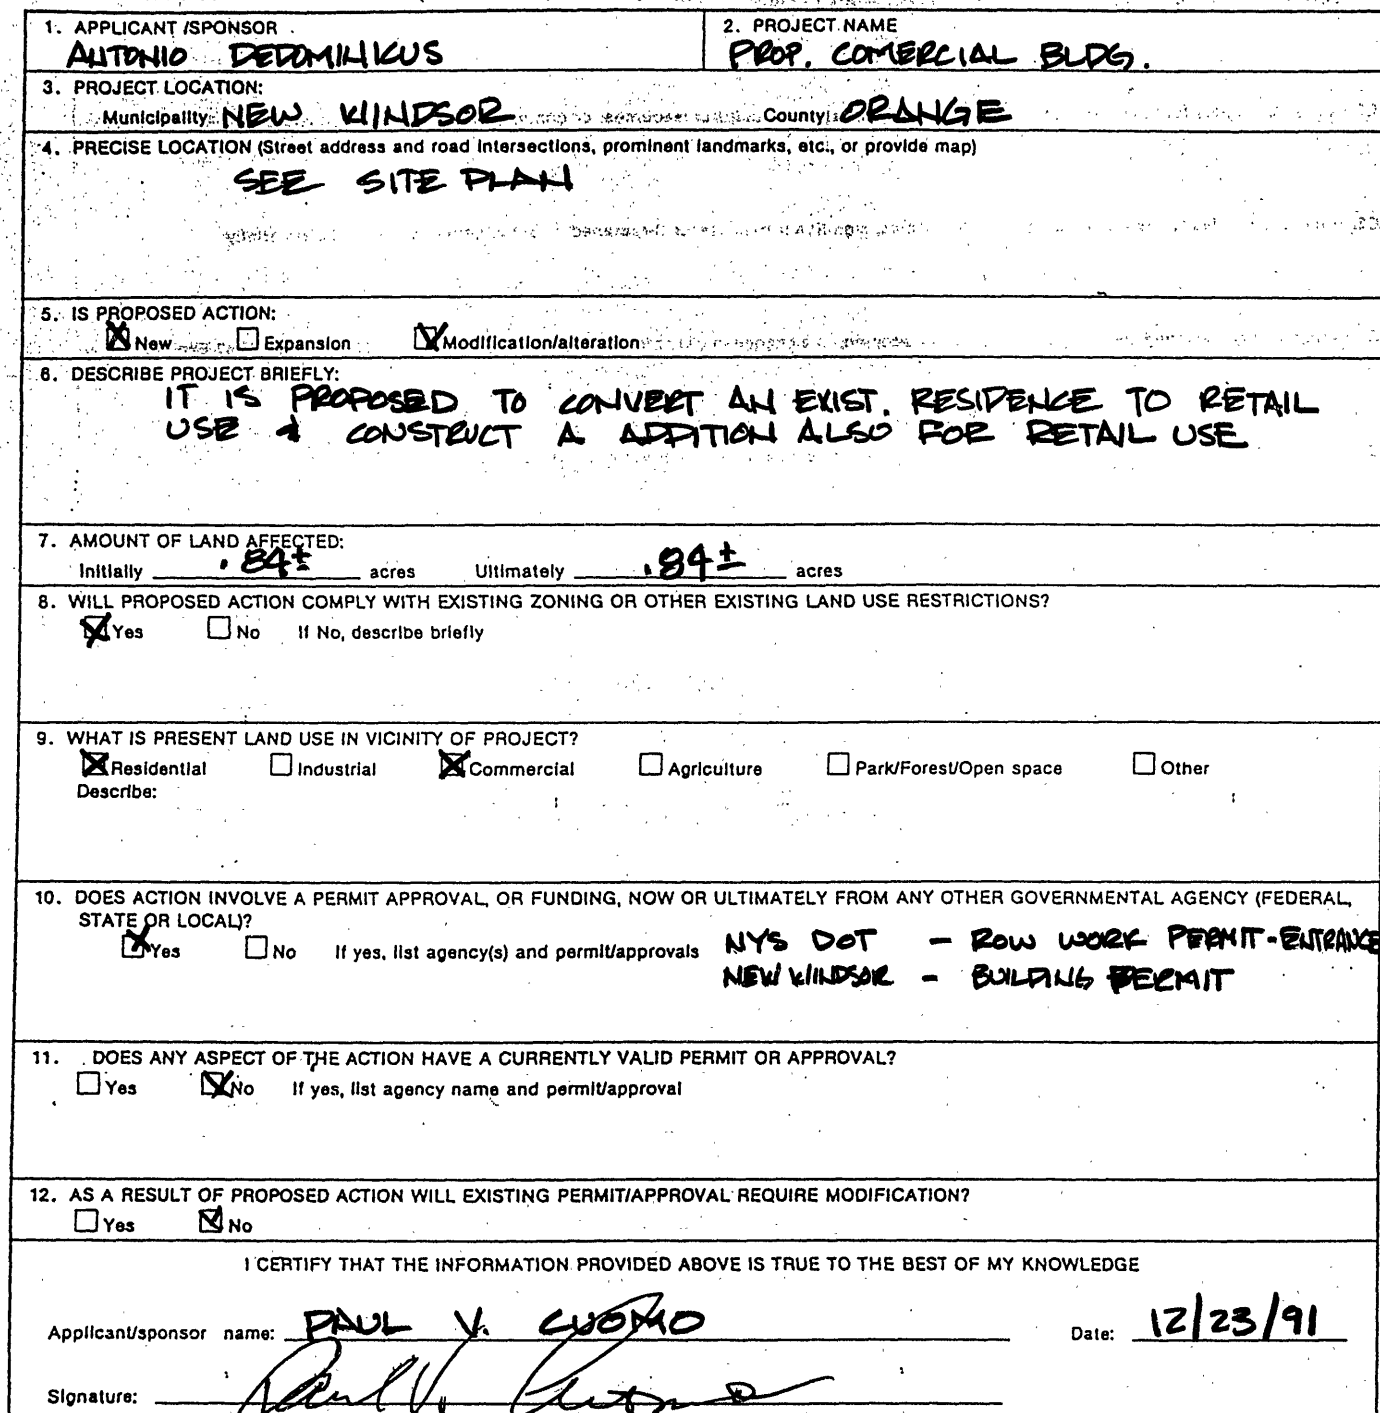 1. APPLICANT /SPONSOR
ANTONIO DEDOMINICUS
2. PROJECT NAME
PROP. COMERCIAL BLDG.
3. PROJECT LOCATION:
Municipality NEW WINDSOR County ORANGE
4. PRECISE LOCATION (Street address and road intersections, prominent landmarks, etc., or provide map)
SEE SITE PLAN
5. IS PROPOSED ACTION:
New Expansion Modification/alteration
6. DESCRIBE PROJECT BRIEFLY:
IT IS PROPOSED TO CONVERT AN EXIST. RESIDENCE TO RETAIL
USE & CONSTRUCT A ADDITION ALSO FOR RETAIL USE
7. AMOUNT OF LAND AFFECTED:
Initially .84± acres Ultimately .84± acres
8. WILL PROPOSED ACTION COMPLY WITH EXISTING ZONING OR OTHER EXISTING LAND USE RESTRICTIONS?
Yes No If No, describe briefly
9. WHAT IS PRESENT LAND USE IN VICINITY OF PROJECT?
Residential Industrial Commercial Agriculture Park/Forest/Open space Other
Describe:
10. DOES ACTION INVOLVE A PERMIT APPROVAL, OR FUNDING, NOW OR ULTIMATELY FROM ANY OTHER GOVERNMENTAL AGENCY (FEDERAL,
STATE OR LOCAL)?
Yes No If yes, list agency(s) and permit/approvals NYS DOT - ROW WORK PERMIT-ENTRANCE
NEW WINDSOR - BUILDING PERMIT
11. DOES ANY ASPECT OF THE ACTION HAVE A CURRENTLY VALID PERMIT OR APPROVAL?
Yes No If yes, list agency name and permit/approval
12. AS A RESULT OF PROPOSED ACTION WILL EXISTING PERMIT/APPROVAL REQUIRE MODIFICATION?
Yes No
I CERTIFY THAT THE INFORMATION PROVIDED ABOVE IS TRUE TO THE BEST OF MY KNOWLEDGE
Applicant/sponsor name: PAUL V. CUOMO Date: 12/23/91
Signature: Paul V. Cuomo